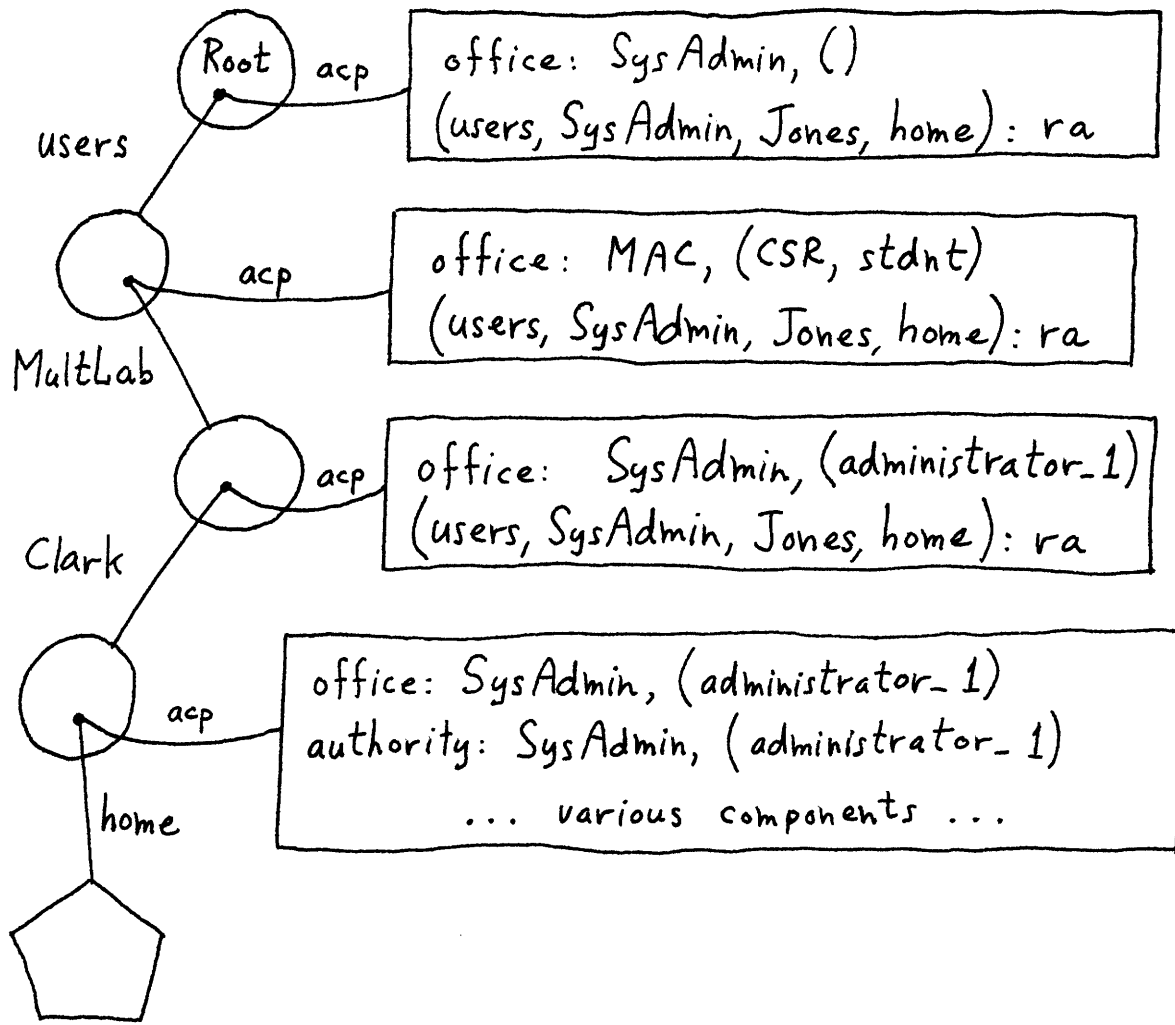 Root
acp
office: SysAdmin, ()
(users, SysAdmin, Jones, home): ra
users
acp
office: MAC, (CSR, stdnt)
(users, SysAdmin, Jones, home): ra
MultLab
acp
office: SysAdmin, (administrator_1)
(users, SysAdmin, Jones, home): ra
Clark
acp
office: SysAdmin, (administrator_1)
authority: SysAdmin, (administrator_1)
... various components ...
home